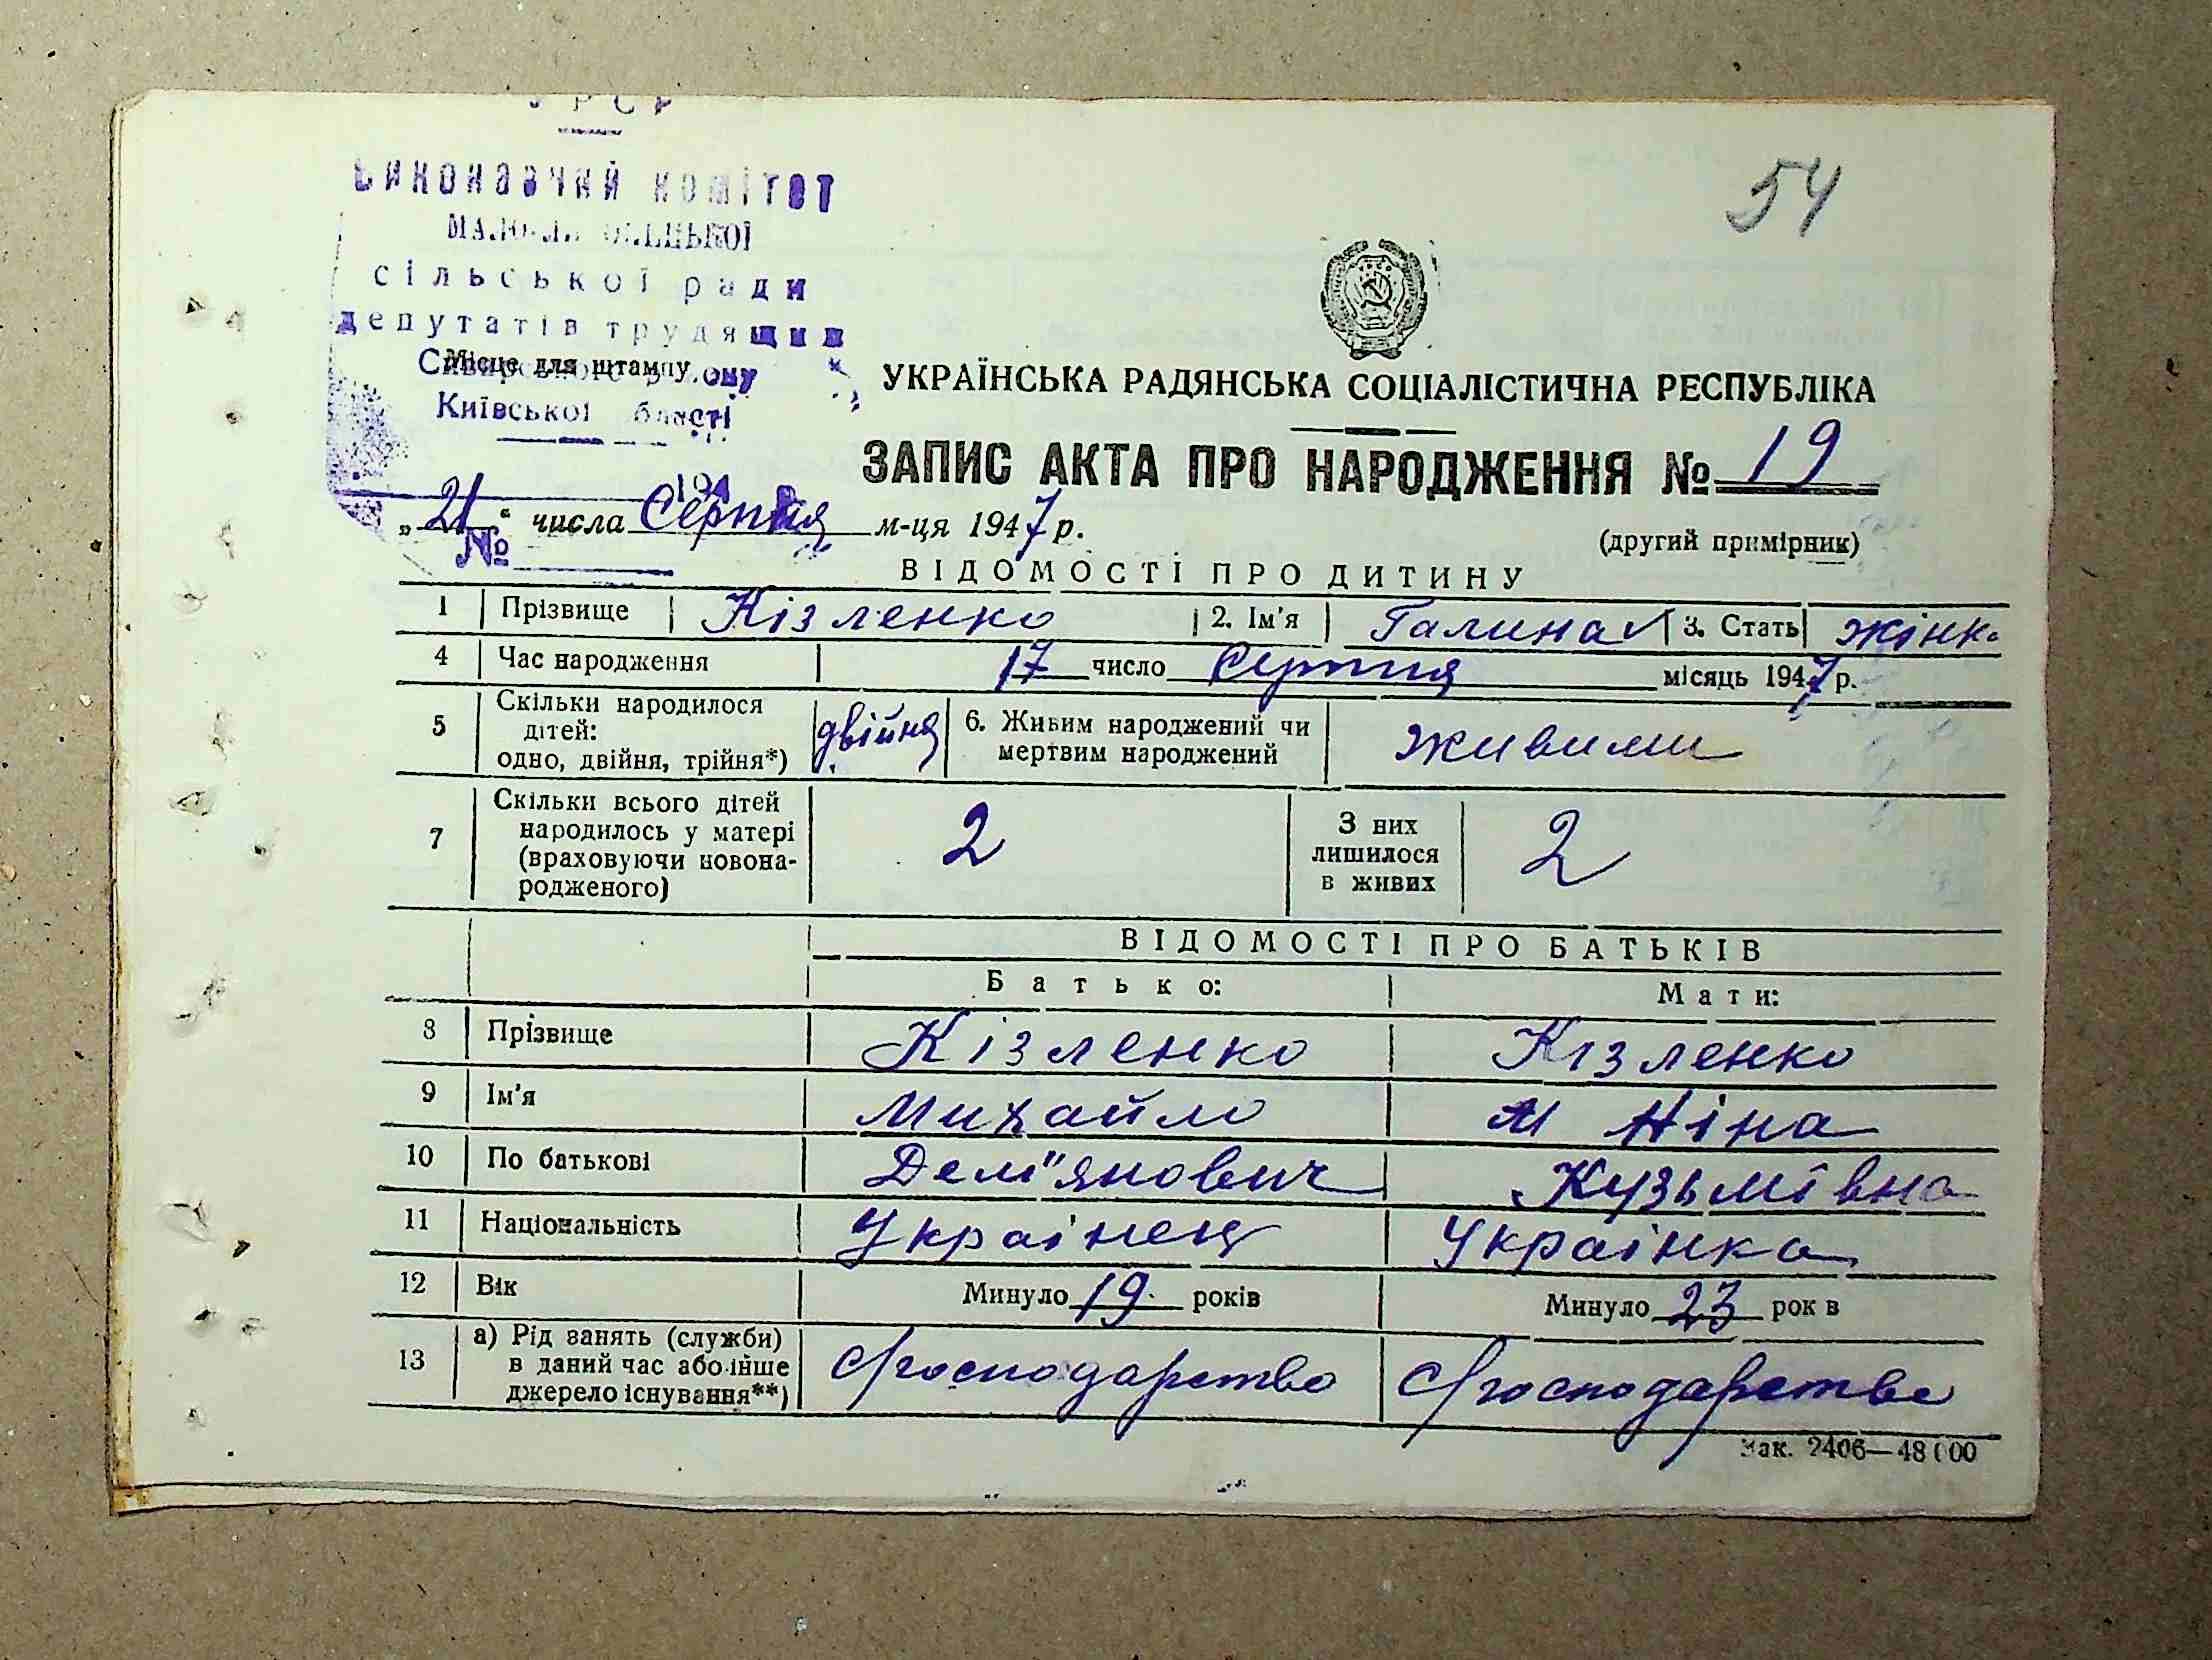 УРСР
Виконавчий комітет
сільської ради
депутатів трудящих
Місце для штампу
Київської області
54
УКРАЇНСЬКА РАДЯНСЬКА СОЦІАЛІСТИЧНА РЕСПУБЛІКА
ЗАПИС АКТА ПРО НАРОДЖЕННЯ № 19
„21“ числа Серпня м-ця 1947 р.
№
(другий примірник)
ВІДОМОСТІ ПРО ДИТИНУ
1 Прізвище Кізленко 2. Ім'я Галина 3. Стать жінк.
4 Час народження 17 число Серпня місяць 1947 р.
5 Скільки народилося дітей: одно, двійня, трійня*) двійня 6. Живим народжений чи мертвим народжений живими
7 Скільки всього дітей народилось у матері (враховуючи новонародженого) 2 З них лишилося в живих 2
ВІДОМОСТІ ПРО БАТЬКІВ
Батько: Мати:
8 Прізвище Кізленко Кізленко
9 Ім'я Михайло Ніна
10 По батькові Дем"янович Кузьмівна
11 Національність Українець Українка
12 Вік Минуло 19 років Минуло 23 років
13 а) Рід занять (служби) в даний час або інше джерело існування**) с/господарство с/господарство
Зак. 2406—48000